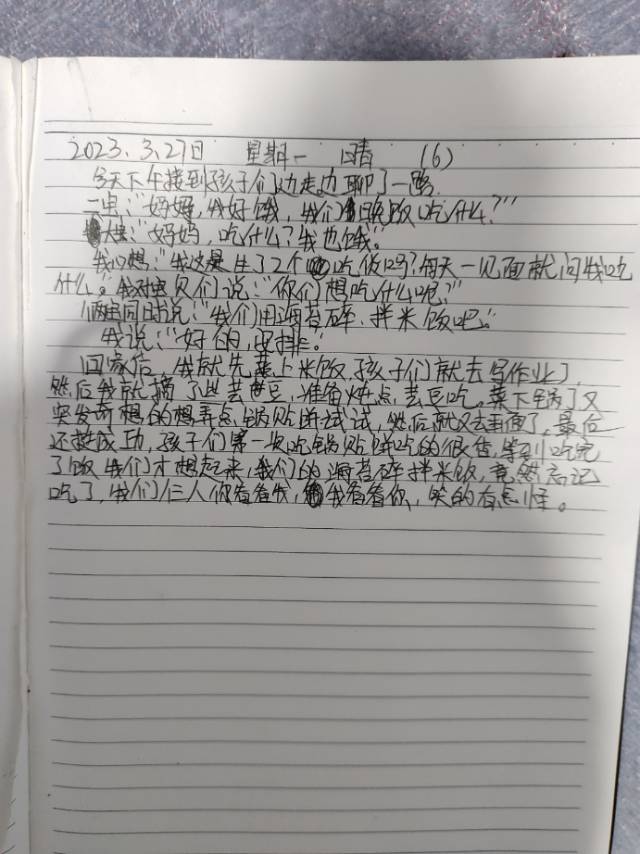 2023.3.27日 星期一 晴 (6)
今天下午接到孩子们边走边聊了一路.
一虫:"妈妈,我好饿,我们晚饭吃什么?"
大虫:"妈妈,吃什么?我也饿。"
我心想:"我这是生了2个吃货吗?每天一见面就问我吃
什么。我对虫贝们说:"你们想吃什么呢?"
俩虫同时说:"我们用海苔碎.拌米饭吧."
我说:"好的,安排."
回家后,我就先蒸上米饭,孩子们就去写作业了.
然后我就摘了些芸豆,准备炖点芸豆吃,菜下锅了又
突发奇想的想弄点锅贴饼试试,然后就又去和面了,最后
还挺成功,孩子们第一次吃锅贴饼吃的很香,等到吃完
了饭我们才想起来,我们的海苔碎拌米饭,竟然忘记
吃了,我们仨人你看看我,我看看你,笑的有点怪。